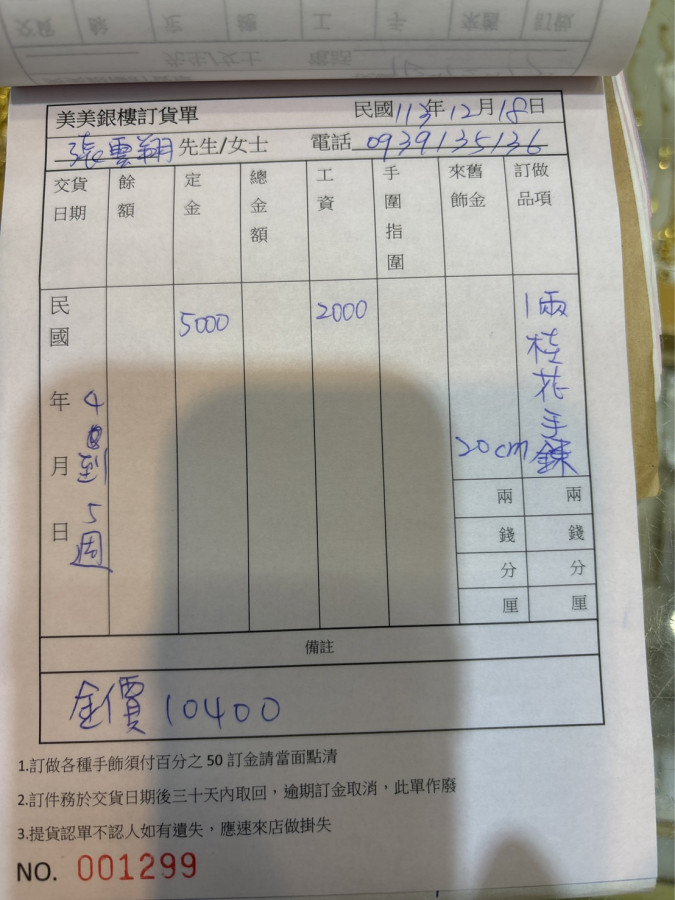 交貨 餘 定 總 工 手 來舊 訂做
先生/女士 電話
美美銀樓訂貨單 民國113年12月18日
張雲翔 先生/女士 電話 0939135136
交貨日期 餘額 定金 總金額 工資 手圍指圍 來舊飾金 訂做品項
民國 年 月 日
4到5週
5000
2000
1兩桂花手鍊
20cm
兩 兩
錢 錢
分 分
厘 厘
備註
金價10400
1.訂做各種手飾須付百分之50訂金請當面點清
2.訂件務於交貨日期後三十天內取回，逾期訂金取消，此單作廢
3.提貨認單不認人如有遺失，應速來店做掛失
NO. 001299